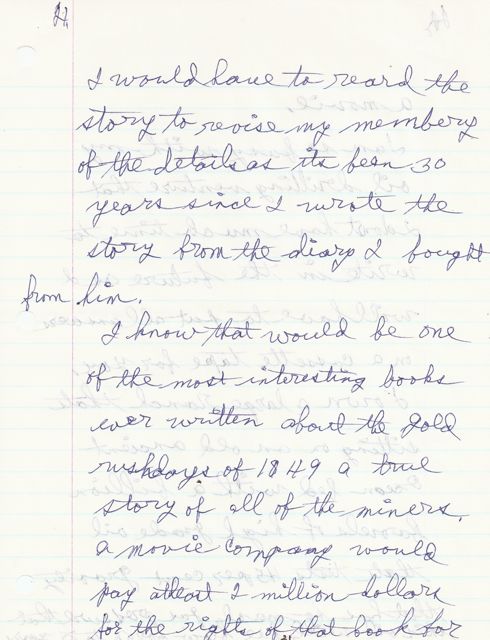 I would have to reard the
story to revise my membery
of the details as its been 30
years since I wrote the
story from the diary I bought
from him.
I know that would be one
of the most interesting books
ever written about the gold
rushdays of 1849 a true
story of all of the miners.
a movie company would
pay atleast 2 million dollars
for the rights of that book for